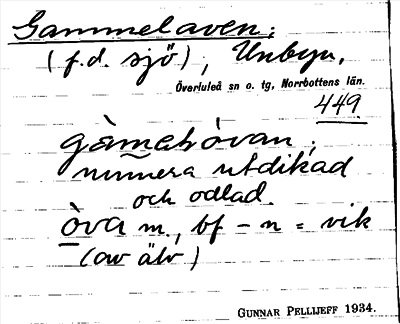 Gammelaven;
(f.d. sjö), Unbyn,
Överluleå sn o. tg, Norrbottens län.
449
gàmalòvan,
numera utdikad
och odlad.
òva m., bf - n = vik
(av älv)
GUNNAR PELLIJEFF 1934.